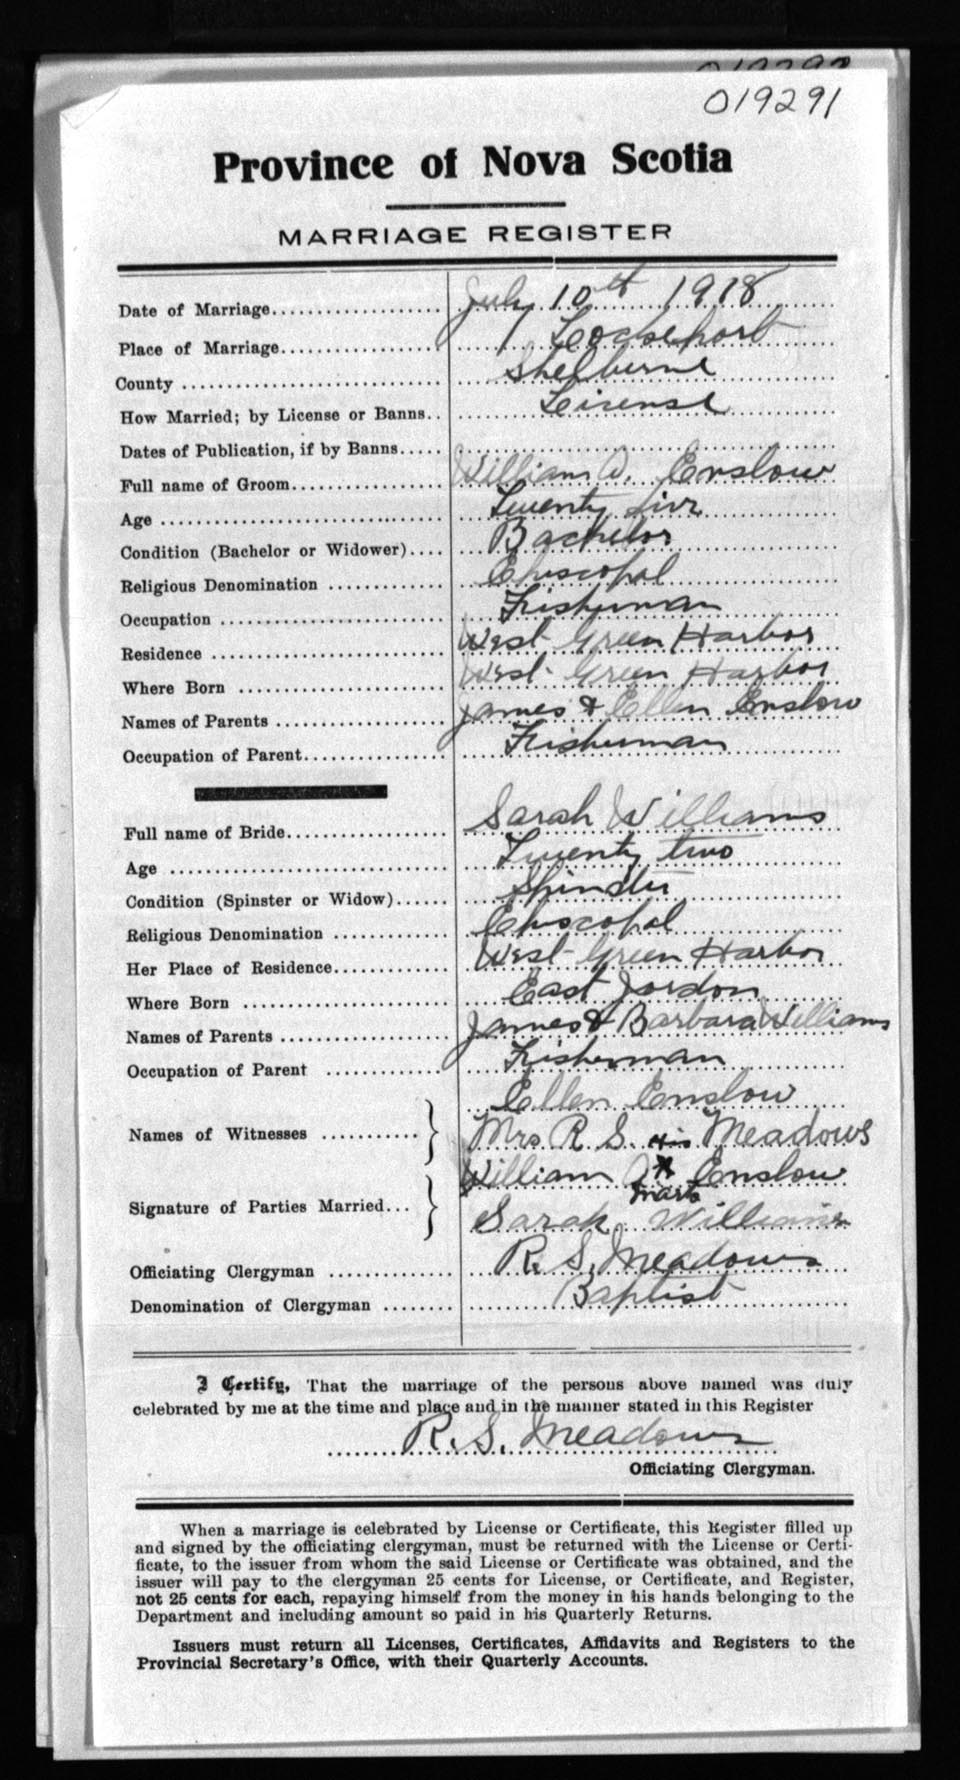 019291
Province of Nova Scotia
MARRIAGE REGISTER
Date of Marriage.................... July 10th 1918
Place of Marriage................... Lockeport
County .............................. Shelburne
How Married; by License or Banns.. License
Dates of Publication, if by Banns.....
Full name of Groom.................. William A. Enslow
Age .................................. Twenty five
Condition (Bachelor or Widower).... Bachelor
Religious Denomination ............ Episcopal
Occupation .......................... Fisherman
Residence ........................... West Green Harbor
Where Born ......................... West Green Harbor
Names of Parents .................... James & Ellen Enslow
Occupation of Parent................ Fisherman
Full name of Bride................... Sarah Williams
Age .................................. Twenty two
Condition (Spinster or Widow)...... Spinster
Religious Denomination ............ Episcopal
Her Place of Residence............. West Green Harbor
Where Born ......................... East Jordon
Names of Parents ................... James & Barbara Williams
Occupation of Parent ............. Fisherman
Ellen Enslow
Names of Witnesses ........... Mrs R. S. Meadows
his
William A X Enslow
mark
Signature of Parties Married...
Sarah Williams
Officiating Clergyman .............. R. S. Meadows
Denomination of Clergyman ........ Baptist
I Certify, That the marriage of the persons above named was duly
celebrated by me at the time and place and in the manner stated in this Register
R. S. Meadows
Officiating Clergyman.
When a marriage is celebrated by License or Certificate, this Register filled up
and signed by the officiating clergyman, must be returned with the License or Certi-
ficate, to the issuer from whom the said License or Certificate was obtained, and the
issuer will pay to the clergyman 25 cents for License, or Certificate, and Register,
not 25 cents for each, repaying himself from the money in his hands belonging to the
Department and including amount so paid in his Quarterly Returns.
Issuers must return all Licenses, Certificates, Affidavits and Registers to the
Provincial Secretary's Office, with their Quarterly Accounts.